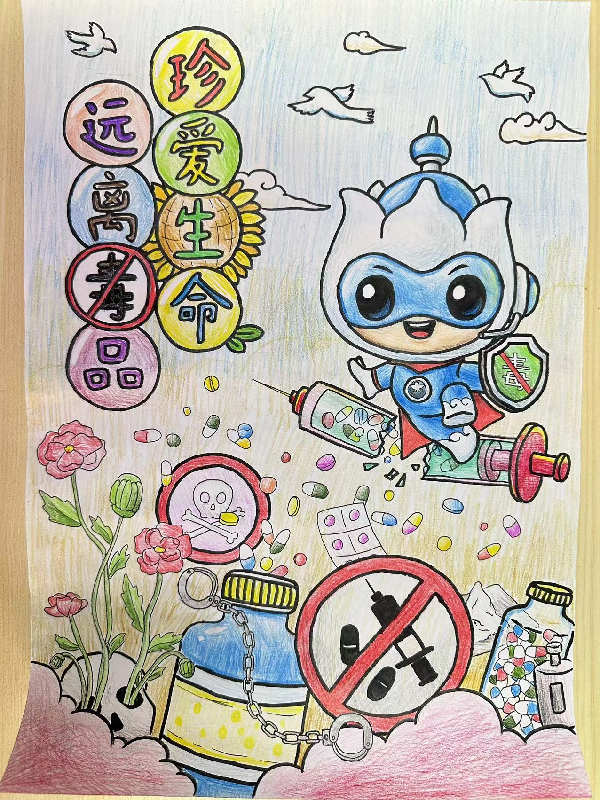 珍爱生命
远离毒品
毒